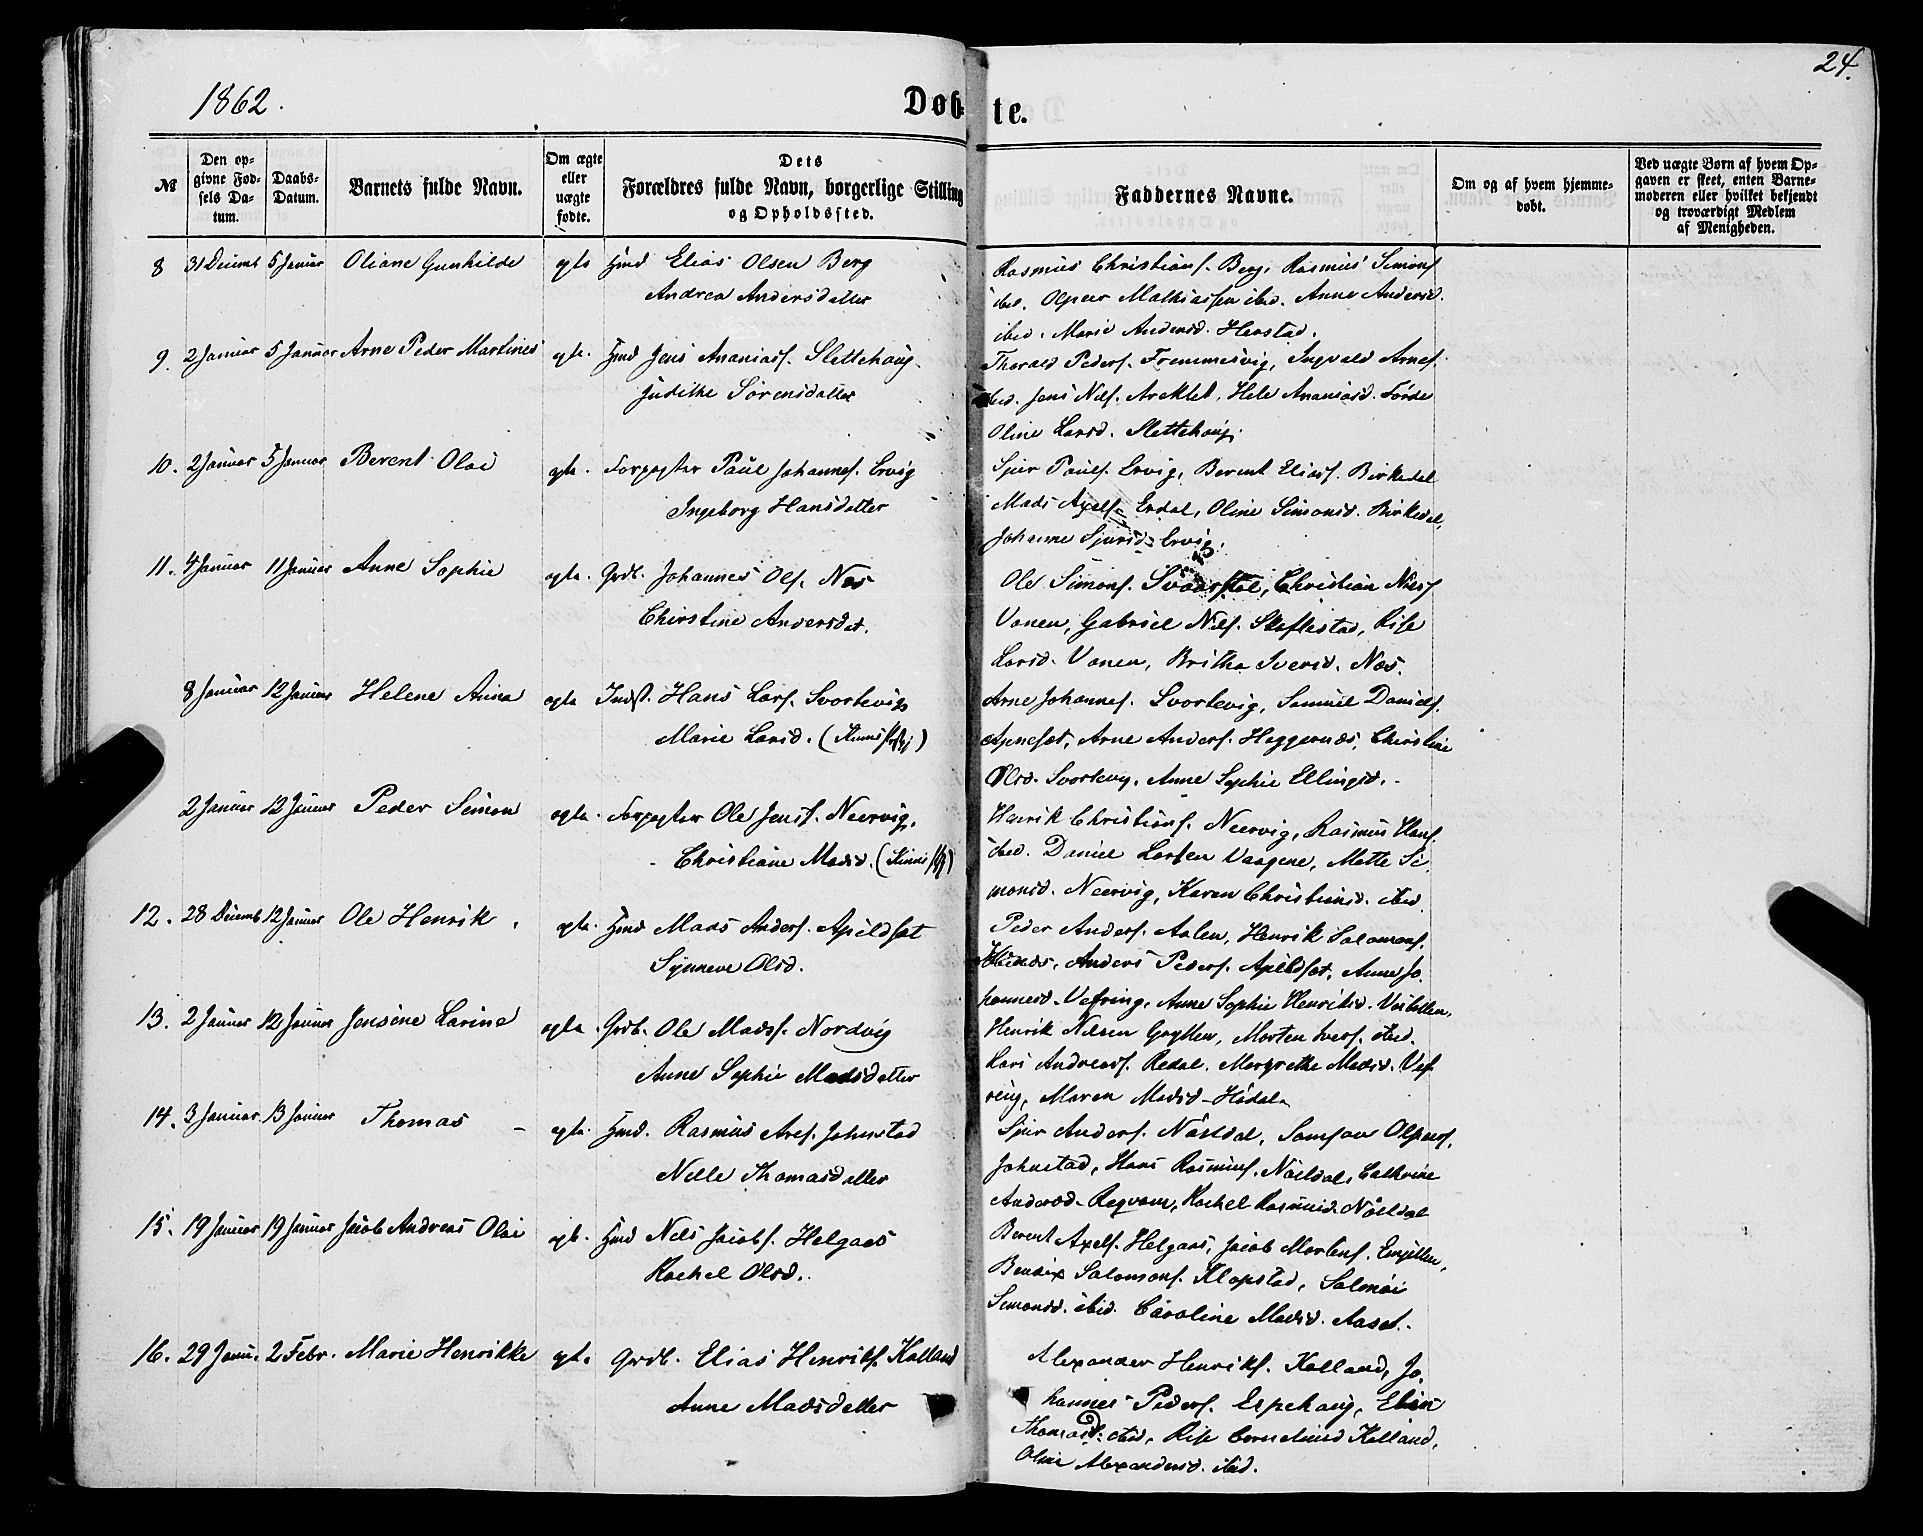 24.
1862.
Døb-
te.
№
Den op-
givne Fød-
sels Da-
tum.
Daabs-
Datum.
Barnets fulde Navn.
Om ægte
eller
uægte
fødte.
Dets
Forældres fulde Navn, borgerlige Stilling
og Opholdssted.
Faddernes Navne.
Om og af hvem hjemme-
døbt.
Ved uægte Børn af hvem Op-
gaven er skeet, enten Barne-
moderen eller hvilket bekjendt
og troværdigt Medlem
af Menigheden.
8 31 Decemb 5 Januar Oliane Gunhilde ægte Hmd Elias Olsen Berg
Andrea Andersdatter
Rasmus Christians. Berg, Rasmus Simons.
ibid. Olpeer Mathiassen ibid. Anne Andersd.
ibid. Marie Andersd. Herstad.
9. 2 Januar 5 Januar Arne Peder Martines ægte. Hmd Jens Ananias. Slettehoug.
Judithe Sørensdatter
Thorald Peders. Fremmesvig, Ingvald Arnes.
ibid. Jens Nils. Areklet, Hele Ananiasd. Førde
Oline Larsd. Slettehoug.
10. 2 Januar 5 Januar Berent Olai ægte. Forpagter Paul Johannes. Ervig
Ingeborg Hansdatter
Sjur Pauls. Ervig, Berent Elias. Birkedal
Mads Axels. Erdal, Oline Simonsd. Birkedal,
Johanne Sjursd. Ervig.
11. 4 Januar 11 Januar Anne Sophie ægte. Grdb. Johannes Ols. Næs
Christine Andersdat.
Ole Simons. Svaarstøl, Christian Niels.
Vonen, Gabriel Nils. Skaflestad, Rise
Larsd. Vonen, Britha Iversd. Næs.
8 Januar 12 Januar Helene Anna ægte Indst. Hans Lars. Svortevig
Marie Larsd. (Kinns Prstgj)
Arne Johannes. Svortevig, Samuel Daniels.
Apnesæt, Arne Anders. Heggernæs, Christine
Olsd. Svortevig, Anne Sophie Ellingsd.
2 Januar 12 Januar Peder Simon ægte. Forpagter Ole Jens. Neervig,
Christiane Madsd. (Kinns Prstgj)
Henrik Christians. Neervig, Rasmus Hans.
ibid. Daniel Larsen Vaagene, Mette Si-
monsd. Neervig, Karen Christiansd. ibid
12. 28 Decemb 12 Januar Ole Henrik. ægte. Hmd Mads Anders. Apildsæt
Synneve Olsd.
Peder Anders. Aalen, Henrik Salomons.
Anders Peders. Apildsæt, Anne Jo-
hannesd. Vefring, Anne Sophie Henriksd.
13. 2 Januar 12 Januar Jensine Larine ægte. Grdb. Ole Mads. Nordvig
Anne Sophie Madsdatter
Henrik Nilsen Gryttem, Morten Ivers. ibid.
Lars Andreas. Redal, Margrethe Madsd. Vef-
ring, Maren Madsd. Hødal.
14. 3 Januar 13 Januar Thomas ægte. Hmd. Rasmus Ares. Johnstad
Nille Thomasdatter
Sjur Anders. Nøsldal, Samson Olpeers.
Johnstad, Hans Rasmus. Nøsldal, Cathrine
Andersd. Reqvam, Rachel Rasmusd. Nøsldal
15. 19 Januar 19 Januar Jacob Andreas Olai ægte. Hmd Nils Jacobs. Helgaas
Rachel Olsd.
Berent Axels. Helgaas, Jacob Mortens.
Bendix Salomons. Klopstad, Salomoi
Simonsd. ibid. Caroline Madsd. Aaset.
16. 29 Janu. 2 Febr. Marie Henrikke ægte Grdb. Elias Henriks. Kalland
Anne Madsdatter
Alexander Henriks. Kalland, Jo-
hannes Peders. Espehoug, Elen
Thomasd. ibid, Rise Corneliusd Kalland,
Oline Alexandersd. ibid.